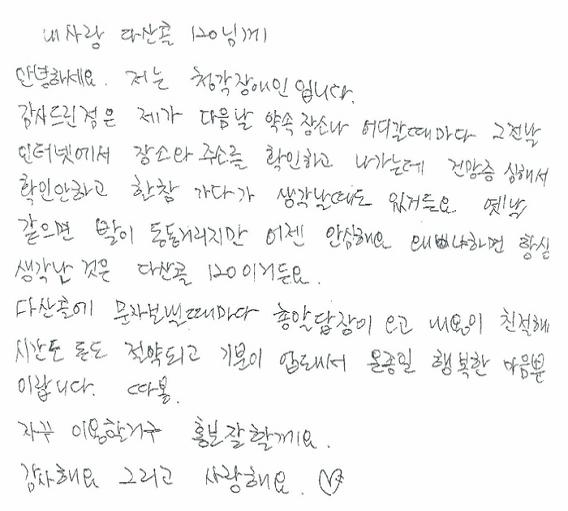 내사랑 다산콜 120님께
안녕하세요. 저는 청각장애인 입니다.
감사드린점은 제가 다음날 약속 장소나 어디갈때마다 그전날
인터넷에서 장소와 주소를 확인하고 나가는데 건망증 심해서
확인안하고 한참 가다가 생각날때도 있거든요 옛날
같으면 발이 동동거리지만 어젠 안심해요 왜냐하면 항상
생각난 것은 다산콜 120이거든요.
다산콜에 문자보낼때마다 총알답장이 오고 내용이 친절해
시간도 돈도 절약되고 기분이 업되서 온종일 행복한 마음뿐
이랍니다. 따봉.
자꾸 이용할거구 홍보잘할께요.
감사해요 그리고 사랑해요. ♡